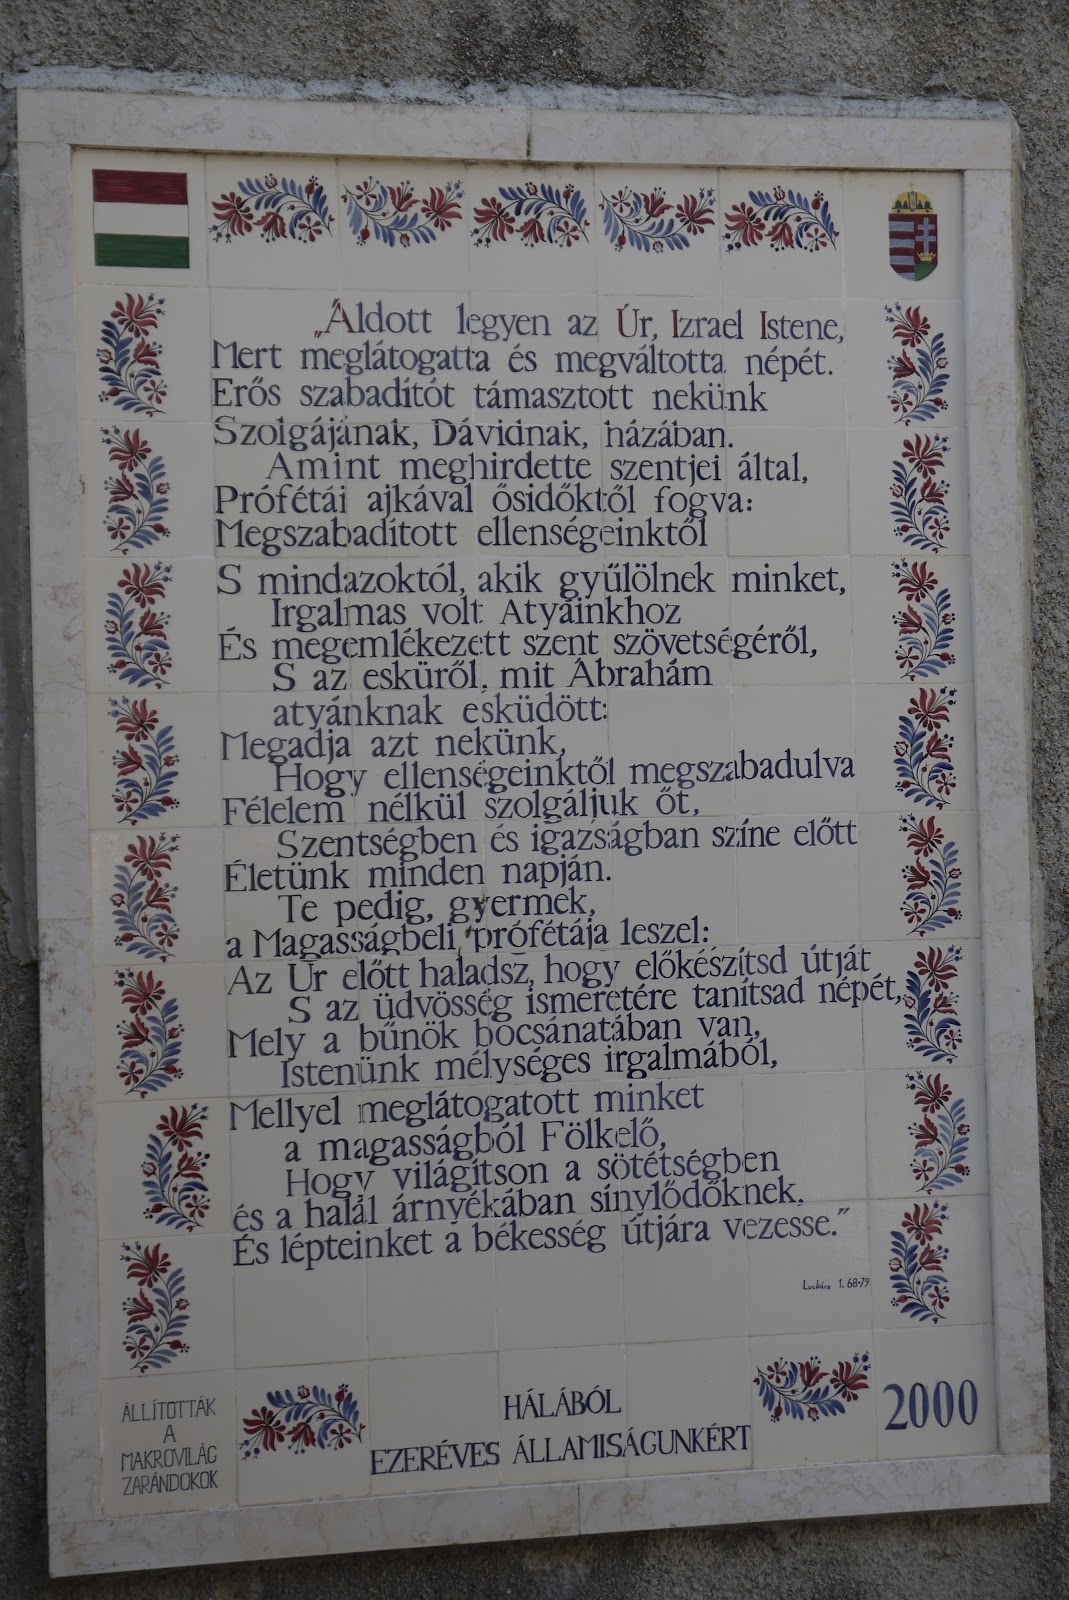 „Áldott legyen az Úr, Izrael Istene,
Mert meglátogatta és megváltotta népét.
Erős szabadítót támasztott nekünk
Szolgájának, Dávidnak, házában.
Amint meghirdette szentjei által,
Prófétái ajkával ősidőktől fogva:
Megszabadított ellenségeinktől
S mindazoktól, akik gyűlölnek minket,
Irgalmas volt Atyáinkhoz
És megemlékezett szent szövetségéről,
S az esküről, mit Ábrahám
atyánknak esküdött:
Megadja azt nekünk,
Hogy ellenségeinktől megszabadulva
Félelem nélkül szolgáljuk őt,
Szentségben és igazságban színe előtt
Életünk minden napján.
Te pedig, gyermek,
a Magasságbeli prófétája leszel:
Az Úr előtt haladsz, hogy előkészítsd útját
S az üdvösség ismeretére tanítsad népét,
Mely a bűnök bocsánatában van,
Istenünk mélységes irgalmából,
Mellyel meglátogatott minket
a magasságból Fölkelő,
Hogy világítson a sötétségben
és a halál árnyékában sínylődőknek.
És lépteinket a békesség útjára vezesse."
Lukács 1. 68-79
ÁLLÍTOTTÁK
A
MAKROVILÁG
ZARÁNDOKOK
HÁLÁBÓL
EZERÉVES ÁLLAMISÁGUNKÉRT
2000